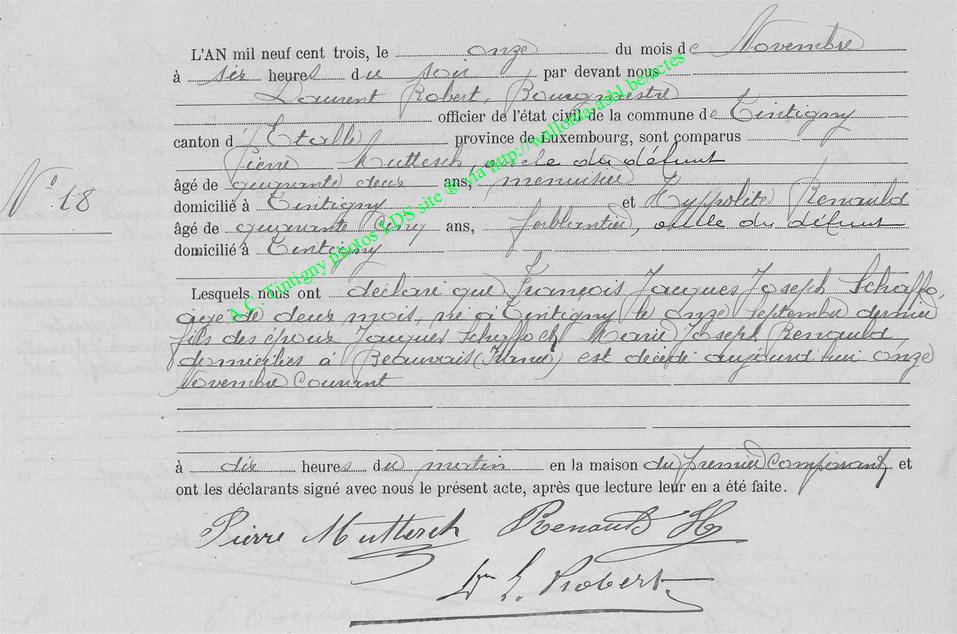 L'AN mil neuf cent trois, le onze du mois de Novembre
à six heures du soir, par devant nous
Laurent Robert, Bourgmestre
officier de l'état civil de la commune de Tintigny
canton d'Etalle province de Luxembourg, sont comparus
Pierre Muttesch, oncle du défunt
N° 18
âgé de quarante deux ans, menuisier
domicilié à Tintigny et Hyppolite Renauld
âgé de quarante cinq ans, ferblantier, oncle du défunt
domicilié à Tintigny
Lesquels nous ont déclaré que François Jacques Joseph Schaffo,
âgé de deux mois, né à Tintigny le onze Septembre dernier
fils des époux Jacques Schaffoch Marie Joseph Renauld,
domiciliés à Beauvais (France) est décédé aujourd'hui onze
Novembre courant
à dix heures du matin en la maison du premier comparant, et
ont les déclarants signé avec nous le présent acte, après que lecture leur en a été faite.
Pierre Muttesch Renauld H
L. Robert
A.C. Tintigny photos LDS site @ via http://wallonia-asbl.be/actes